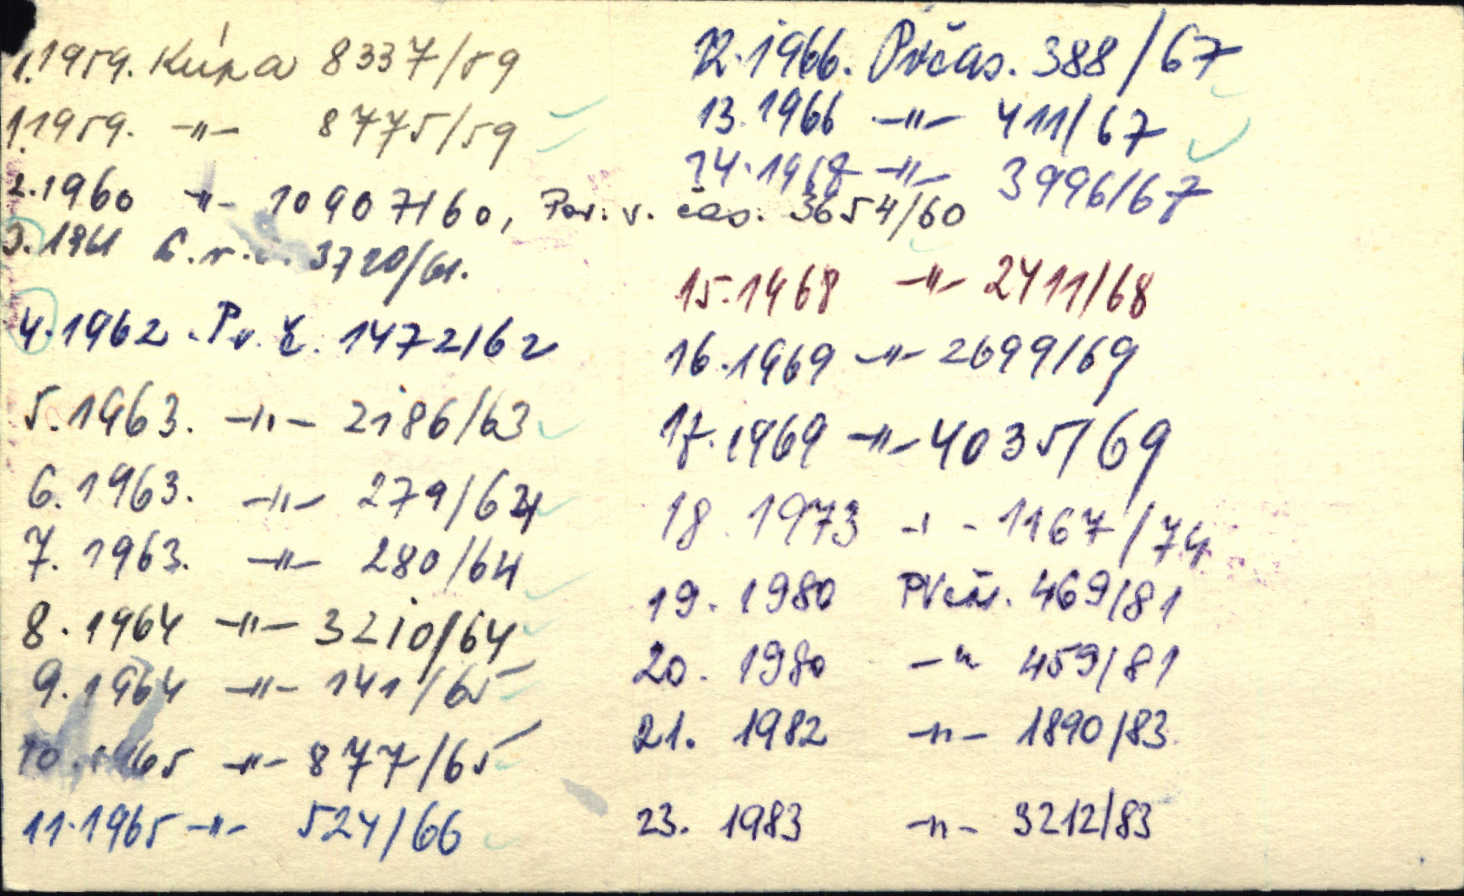 1.1959. Kúpa 8337/59
1.1959. -"- 8775/59
2.1960 -"- 10907/60, Por. v. čas. 3654/60
3.1961 3720/61.
4.1962. Pv. č. 1472/62
5.1963. -"- 2186/63
6.1963. -"- 279/64
7. 1963. -"- 280/64
8.1964 -"- 3210/64
9.1964 -"- 141/65
10.1965 -"- 877/65
11.1965 -"- 524/66
12.1966. Pvčas. 388/67
13.1966 -"- 411/67
14.1968 -"- 3996/67
15.1968 -"- 2411/68
16.1969 -"- 2699/69
17.1969 -"- 4035/69
18. 1973 -"- 1167/74
19. 1980 PVčas. 469/81
20. 1980 -"- 459/81
21. 1982 -"- 1890/83
23. 1983 -"- 3212/83